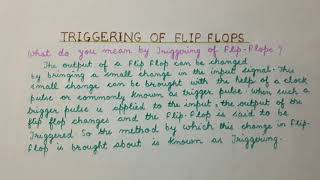 TRIGGERING OF FLIP FLOPS
What do you mean by Triggering of Flip-Flops?
The output of a Flip Flop can be changed
by bringing a small change in the input signal. This
small change can be brought with the help of a clock
pulse or commonly known as trigger pulse when such a
trigger pulse is applied to the input, the output of the
flip flop changes and the Flip-Flop is said to be
Triggered. So the method by which this change in Flip-
Flop is brought about is known as Triggering.